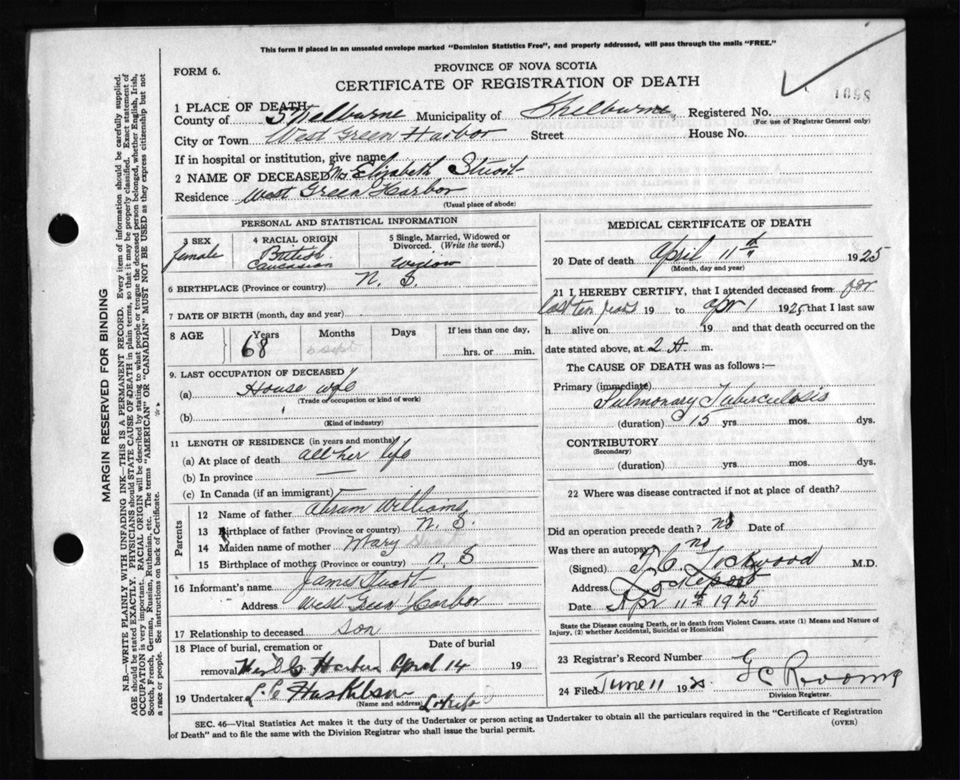 This form if placed in an unsealed envelope marked "Dominion Statistics Free", and properly addressed, will pass through the mails "FREE."
FORM 6.
PROVINCE OF NOVA SCOTIA
CERTIFICATE OF REGISTRATION OF DEATH
1 PLACE OF DEATH
County of Shelburne Municipality of Shelburne Registered No.
(For use of Registrar General only)
City or Town West Green Harbor Street House No.
If in hospital or institution, give name
2 NAME OF DECEASED Mrs Elizabeth Stuart
Residence West Green Harbor
(Usual place of abode)
PERSONAL AND STATISTICAL INFORMATION
3 SEX female
4 RACIAL ORIGIN British Caucasian
5 Single, Married, Widowed or Divorced. (Write the word.) Widow
6 BIRTHPLACE (Province or country) N. S.
7 DATE OF BIRTH (month, day and year)
8 AGE Years Months Days If less than one day,
68 hrs. or min.
9. LAST OCCUPATION OF DECEASED
(a) House wife
(Trade or occupation or kind of work)
(b)
(Kind of industry)
11 LENGTH OF RESIDENCE (in years and months)
(a) At place of death all her life
(b) In province
(c) In Canada (if an immigrant)
Parents
12 Name of father Abram Williams
13 Birthplace of father (Province or country) N. S.
14 Maiden name of mother Mary
15 Birthplace of mother (Province or country) N S
16 Informant's name James Stuart
Address West Green Harbor
17 Relationship to deceased son
18 Place of burial, cremation or removal Date of burial
Harbor April 14 19
19 Undertaker
(Name and address)
MEDICAL CERTIFICATE OF DEATH
20 Date of death April 11th 1925
(Month, day and year)
21 I HEREBY CERTIFY, that I attended deceased from for
last ten years 19 to Apr 1 1925 that I last saw
h alive on 19 and that death occurred on
date stated above, at 2 A m.
The CAUSE OF DEATH was as follows:—
Primary (immediate)
Pulmonary Tuberculosis
(duration) 15 yrs. mos. dys.
CONTRIBUTORY
(Secondary)
(duration) yrs. mos. dys.
22 Where was disease contracted if not at place of death?
Did an operation precede death? no Date of
Was there an autopsy no
(Signed) Lockwood M.D.
Address Lockeport
Date Apr 11th 1925
State the Disease causing Death, or in death from Violent Causes, state (1) Means and Nature of Injury, (2) whether Accidental, Suicidal or Homicidal
23 Registrar's Record Number
24 Filed June 11 19
Division Registrar.
SEC. 46—Vital Statistics Act makes it the duty of the Undertaker or person acting as Undertaker to obtain all the particulars required in the "Certificate of Registration
of Death" and to file the same with the Division Registrar who shall issue the burial permit.
(OVER)
MARGIN RESERVED FOR BINDING
N.B.—WRITE PLAINLY WITH UNFADING INK—THIS IS A PERMANENT RECORD. Every item of information should be carefully supplied.
AGE should be stated EXACTLY. PHYSICIANS should STATE CAUSE OF DEATH in plain terms, so that it may be properly classified. Exact statement of
OCCUPATION is very important. RACIAL ORIGIN will be described by stating to what people or tongue the deceased person belonged, whether English, Irish,
Scotch, French, German, Russian, Ruthenian, etc. The terms "AMERICAN" OR "CANADIAN" MUST NOT BE USED as they express citizenship but not
a race or people. See instructions on back of Certificate.